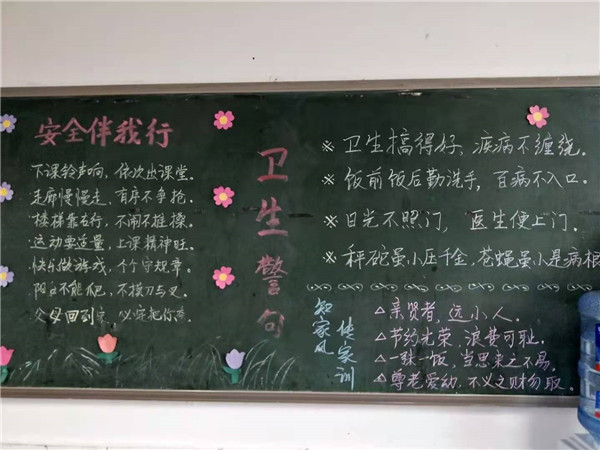 安全伴我行
下课铃声响，依次出课堂.
走廊慢慢走，有序不争抢.
楼梯靠右行，不闹不推操.
运动要适量，上课精神旺.
快乐做游戏，个个守规章.
阳台不能爬，不摸刀与叉.
父母回到家，必定把你夸.
卫生警句
※ 卫生搞得好，疾病不缠绕.
※ 饭前饭后勤洗手，百病不入口.
※ 日光不照门，医生便上门.
※ 秤砣虽小压千金，苍蝇虽小是病根
知家风
传家训
△亲贤者，远小人.
△节约光荣，浪费可耻.
△一珠一饭，当思来之不易.
△尊老爱幼，不义之财勿取.